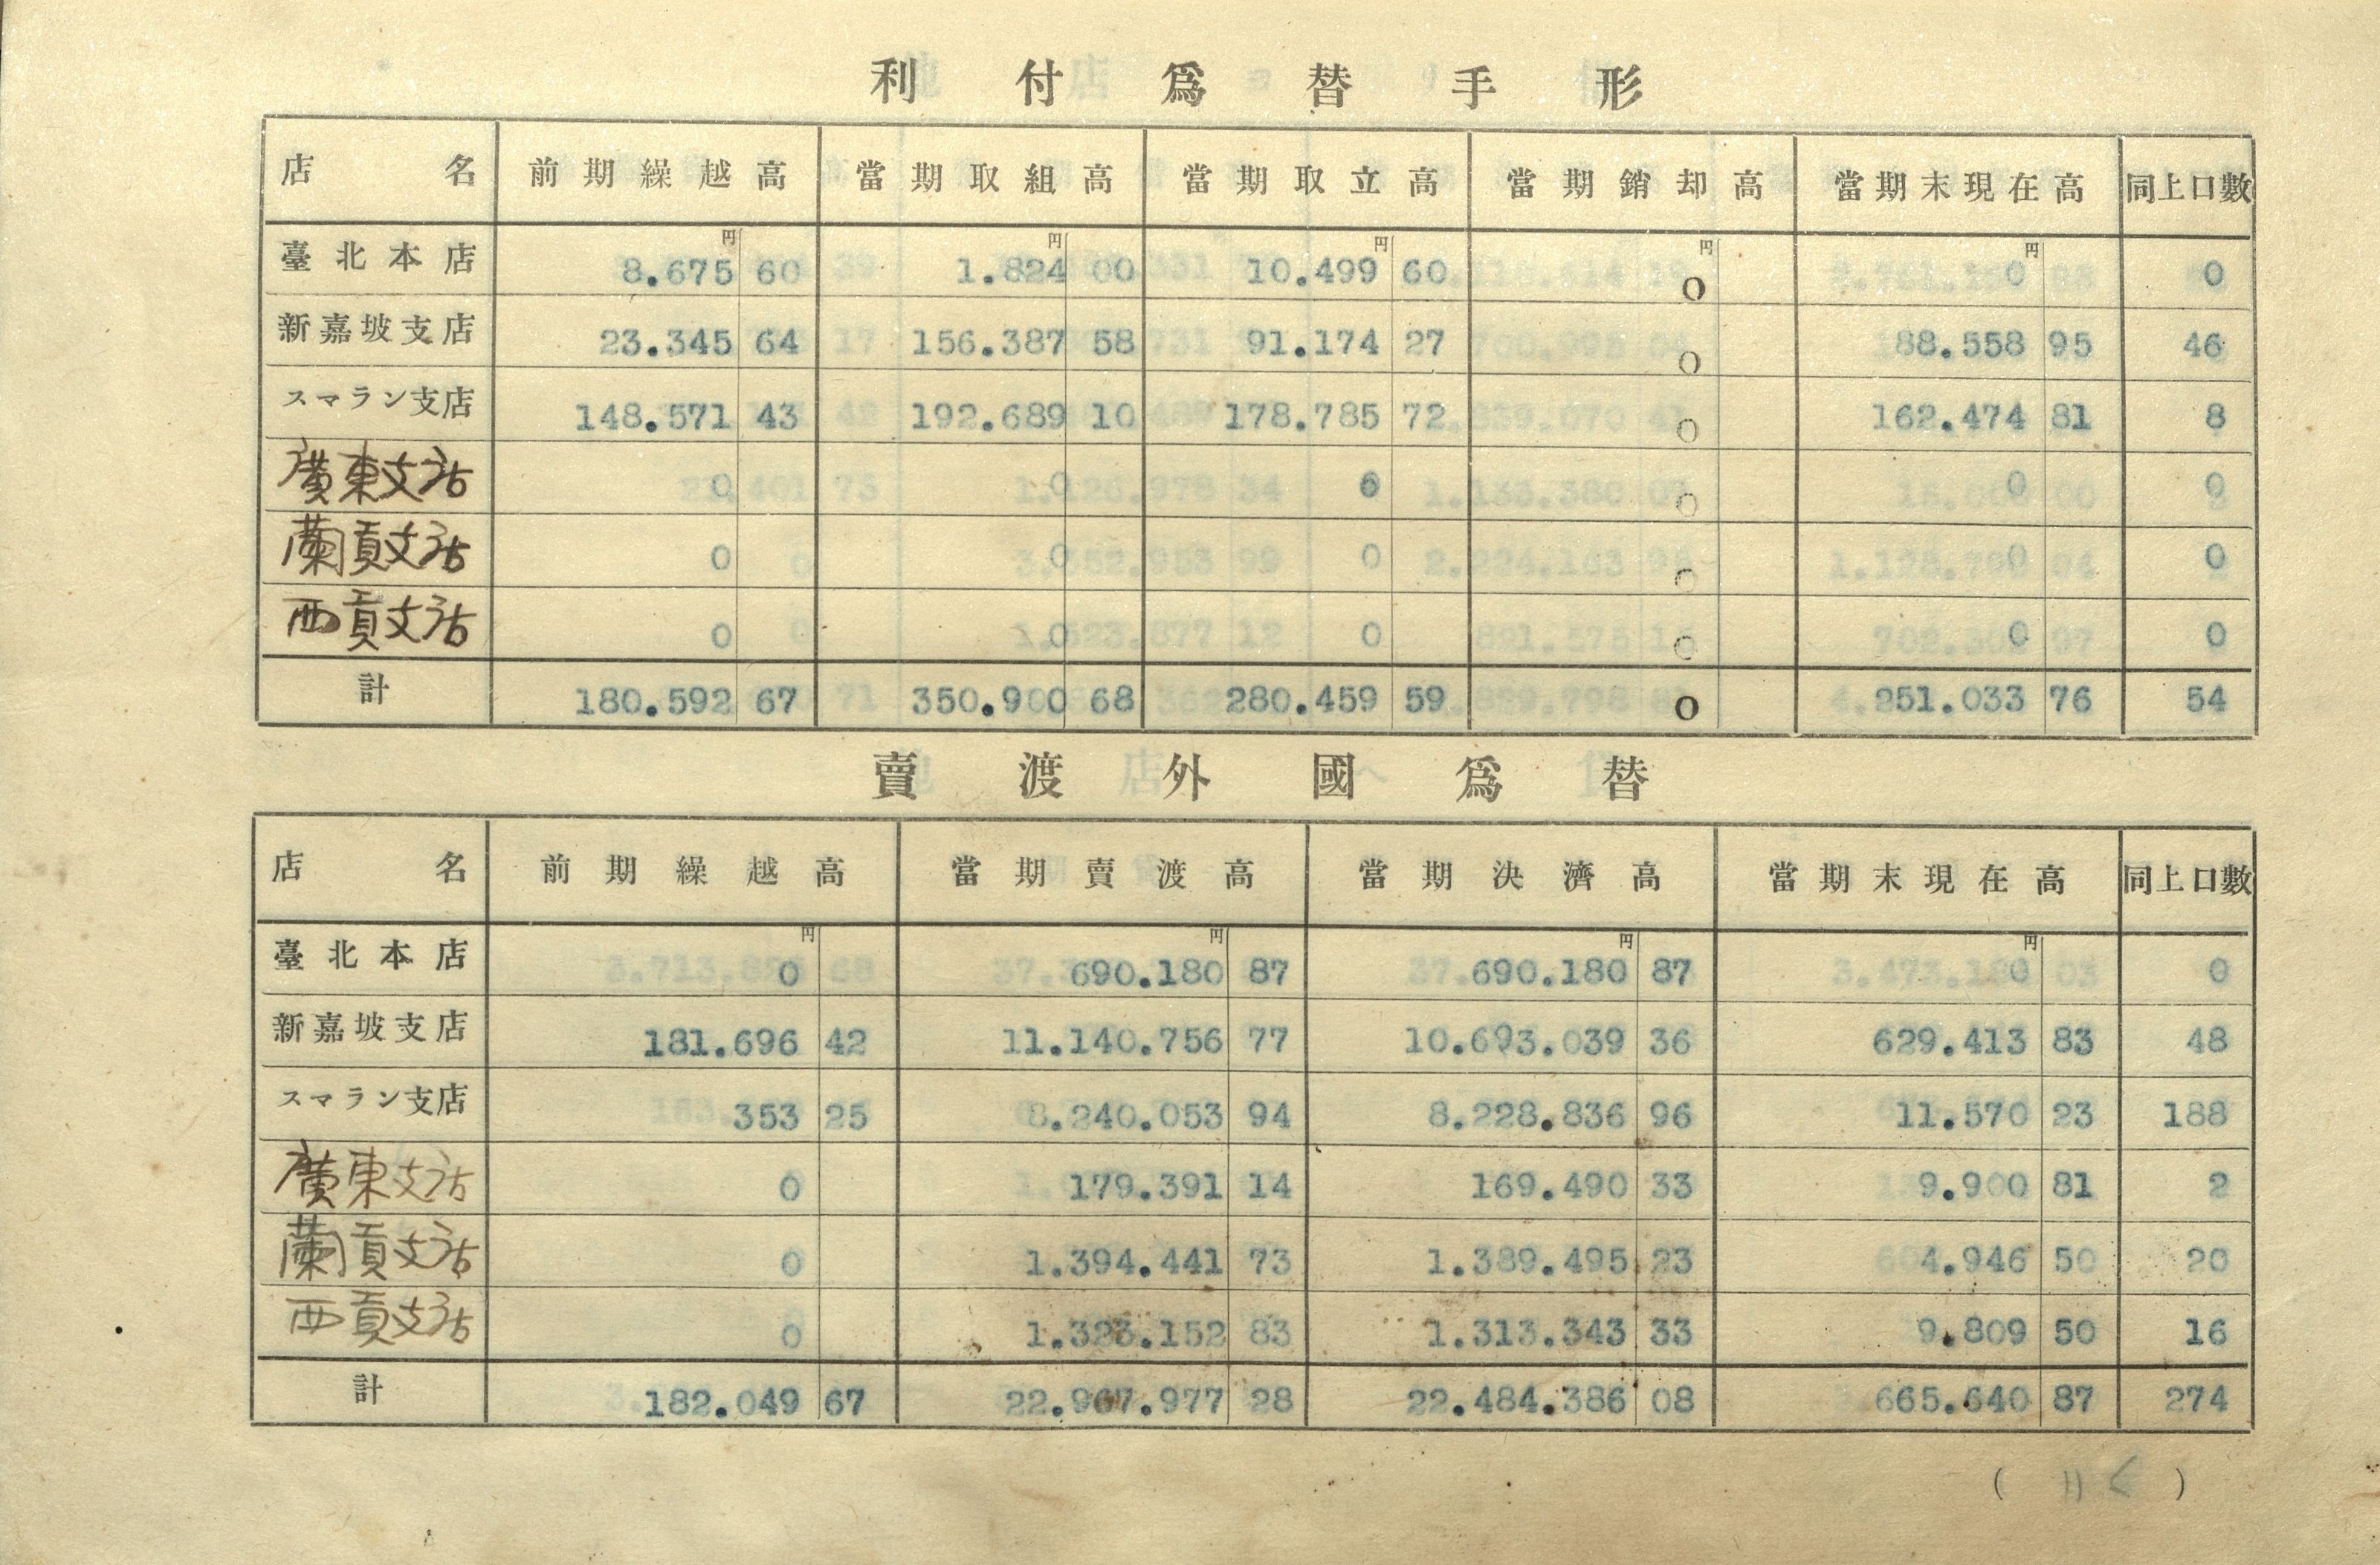 利付爲替手形
店名 前期繰越高 當期取組高 當期取立高 當期銷却高 當期末現在高 同上口數
円 円 円 円 円
臺北本店 8.675 60 1.824 00 10.499 60 0 0 0
新嘉坡支店 23.345 64 156.387 58 91.174 27 0 88.558 95 46
スマラン支店 148.571 43 192.689 10 178.785 72 0 162.474 81 8
廣東支店 0 0 0 0 0 0
蘭貢支店 0 0 0 0 0 0
西貢支店 0 0 0 0 0 0
計 180.592 67 350.900 68 280.459 59 0 251.033 76 54
賣渡外國爲替
店名 前期繰越高 當期賣渡高 當期決濟高 當期末現在高 同上口數
円 円 円 円
臺北本店 0 690.180 87 690.180 87 0 0
新嘉坡支店 181.696 42 11.140.756 77 10.693.039 36 629.413 83 48
スマラン支店 353 25 8.240.053 94 8.228.836 96 11.570 23 188
廣東支店 0 179.391 14 169.490 33 9.900 81 2
蘭貢支店 0 1.394.441 73 1.389.495 23 4.946 50 20
西貢支店 0 1.323.152 83 1.313.343 33 9.809 50 16
計 182.049 67 22.967.977 28 22.484.386 08 665.640 87 274